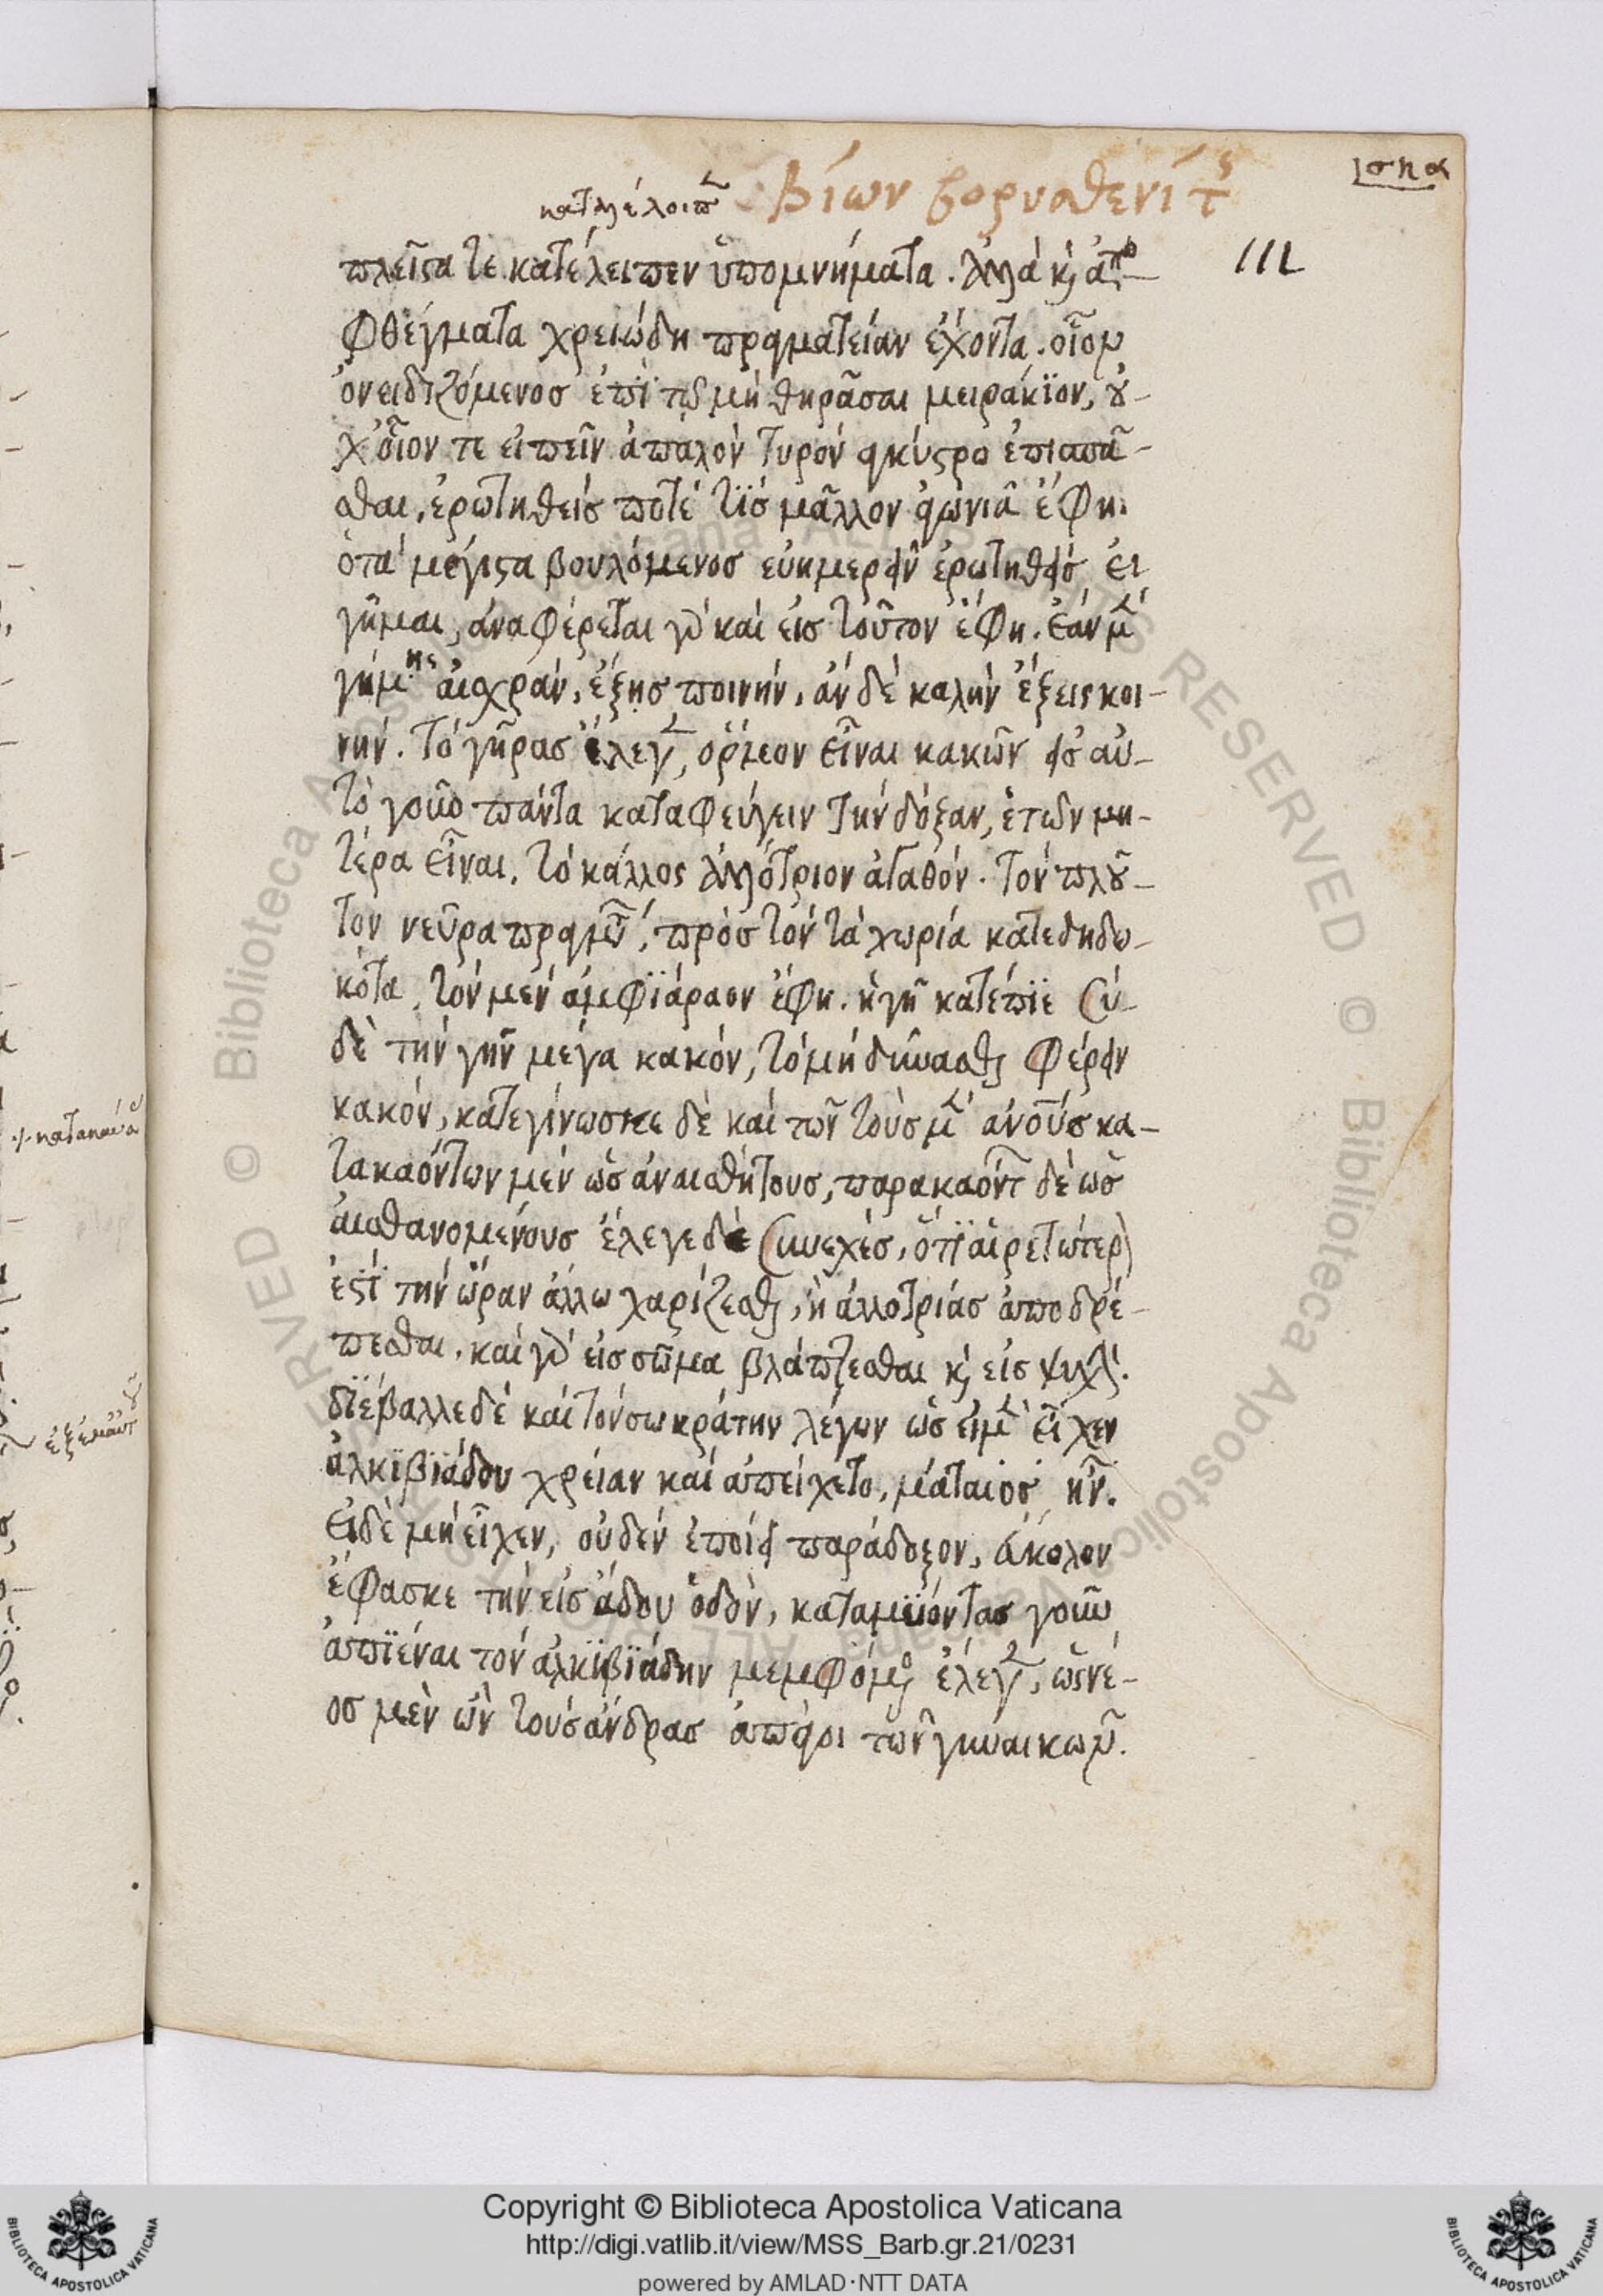 ισπα
Βίων βορυσθενίτς
καταλέλοιπ
111
πλεῖστα τε κατέλειπεν ὑπομνήματα. ἀλλὰ κ̀ ἀπο-
φθέγματα χρειώδη πραγματείαν ἔχοντα. οἷον
ὀνειδιζόμενος ἐπὶ τῶ μὴ θηρᾶσαι μειράκϊον, ού-
χ οἷον τε εἰπεῖν ἁπαλὸν τυρὸν ἀγκίστρω ἐπισπᾶ-
σθαι, ἐρωτηθείς ποτέ τίσ μᾶλλον ἀγωνιᾶ ἔφη.
ὁ τὰ μέγιστα βουλόμενοσ εὐημερεῖν ἐρωτηθείσ εἰ
γῆμαι, ἀναφέρεται γὰρ καί εἰσ τοῦτον ἔφη. ἐάν μὲν
γήμης αἰσχράν, ἕξησ ποινήν, ἀν δέ καλήν ἕξεις κοι-
νήν. Τό γῆρασ ἔλεγεν, ὅρμεον εἶναι κακῶν εἰσ αὐ-
τὸ γοῦν πάντα καταφεύγειν τήν δόξαν, ἐτῶν μη-
τέρα εἶναι. τό κάλλος ἀλλότριον ἀγαθόν. Τόν πλοῦ-
τον νεῦρα πραγμάτων, πρὸσ τόν τὰ χωρία κατεδηδο-
κότα, τόν μέν ἀμφϊάραον ἔφη. ἡ γῆ κατέπϊε σύ-
δὲ τήν γῆν μέγα κακόν, τό μή δύνασθαι φέρειν
κακόν, κατεγίνωσκε δέ καί τῶν τοὺσ μὲν ἀνούσ κα-
τακαόντων μέν ὡσ ἀναισθήτουσ, παρακαόντ δέ ὡσ
αἰσθανομένουσ ἔλεγε δὲ συνεχέσ, ὅτϊ αἱρετώτερον
ἐστί τήν ὥραν ἄλλω χαρίζεσθαι, ἡ ἀλλοτρίασ ἀποδρέ-
πεσθαι. καί γὰρ εἰσ σῶμα βλάπτεσθαι κ̀ εἰσ ψυχήν.
διέβαλλε δέ καί τόν σωκράτην λέγων ὡσ εἰ μὲν εἶχεν
ἀλκϊβϊάδου χρείαν καί ἀπείχετο, μάταιοσ ἦν.
Εἰ δὲ μή εἶχεν, οὐδέν ἐποίει παράδοξον, εὔκολον
ἔφασκε τήν εἰσ ἄδου ὁδὸν, καταμύοντασ γοῦν
ἀπϊέναι τόν ἀλκϊβϊάδην μεμφόμενος ἔλεγεν, ὡς νέ-
οσ μὲν ὢν τούσ ἄνδρασ ἀπάγοι τῶν γυναικῶν.
Copyright © Biblioteca Apostolica Vaticana
http://digi.vatlib.it/view/MSS_Barb.gr.21/0231
powered by AMLAD·NTT DATA